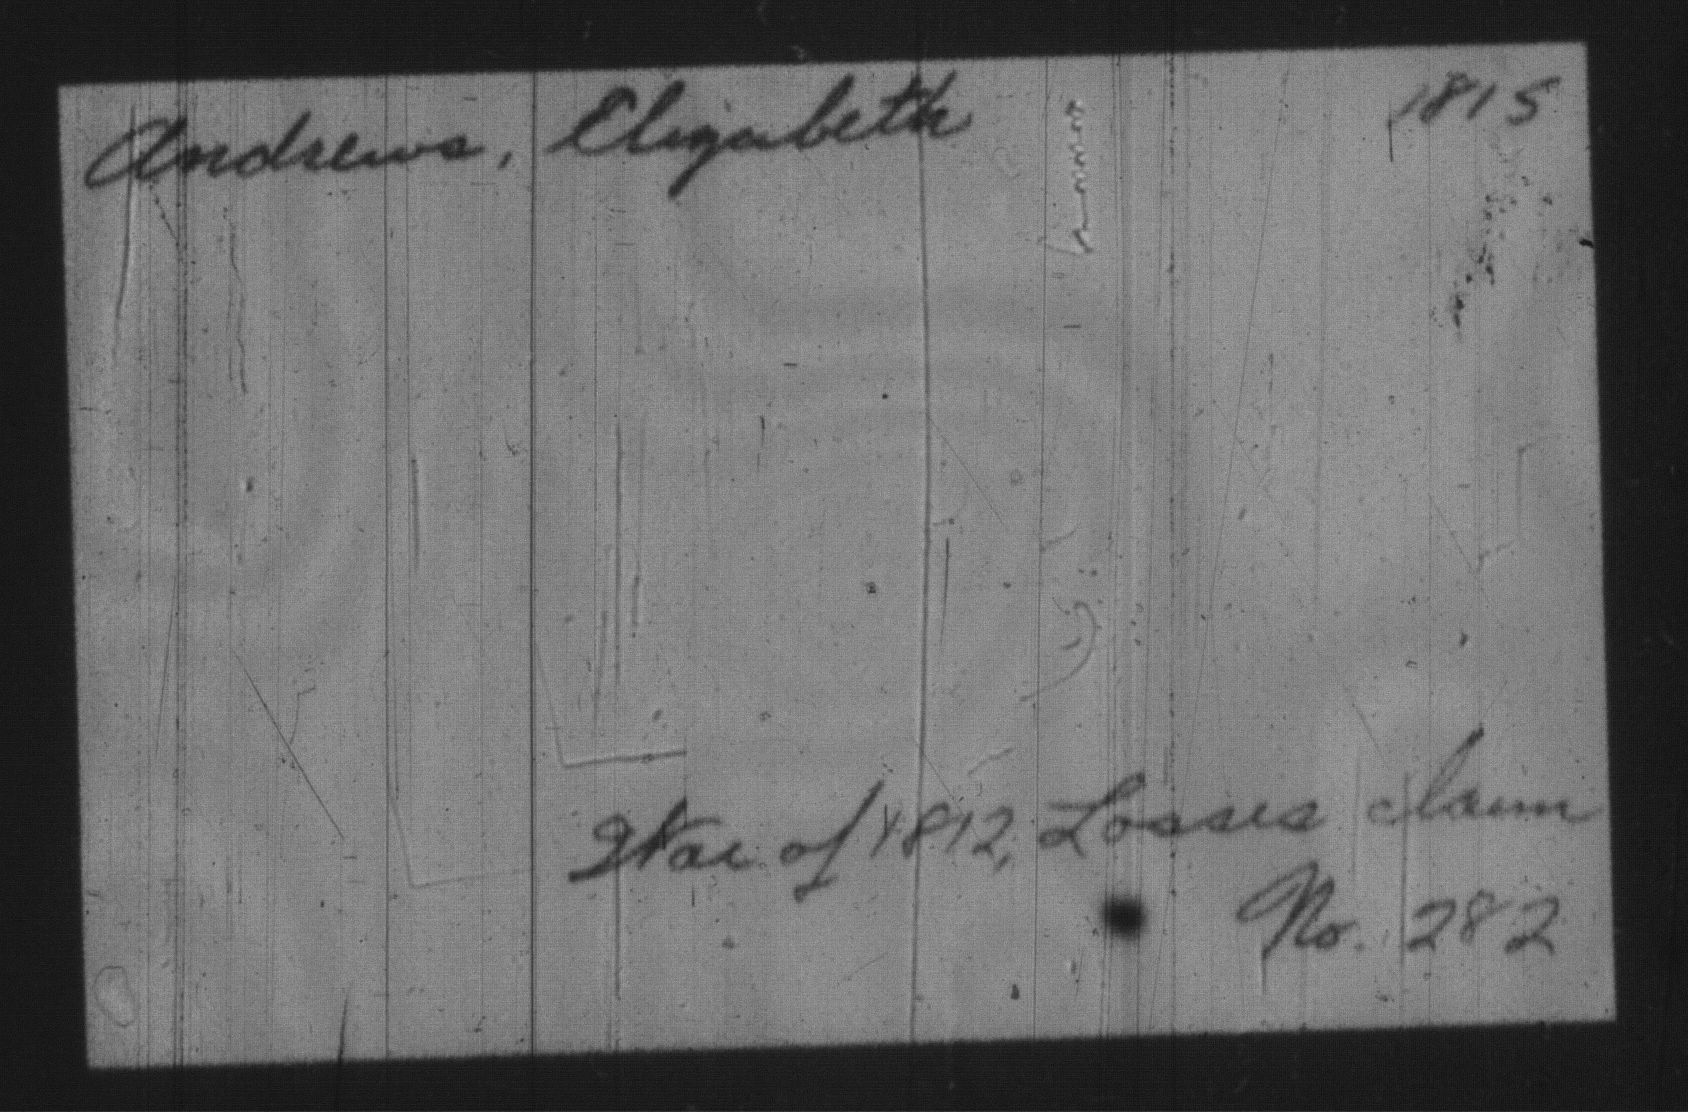 Andrews, Elizabeth 1815
War of 1812, Losses claim
No. 282